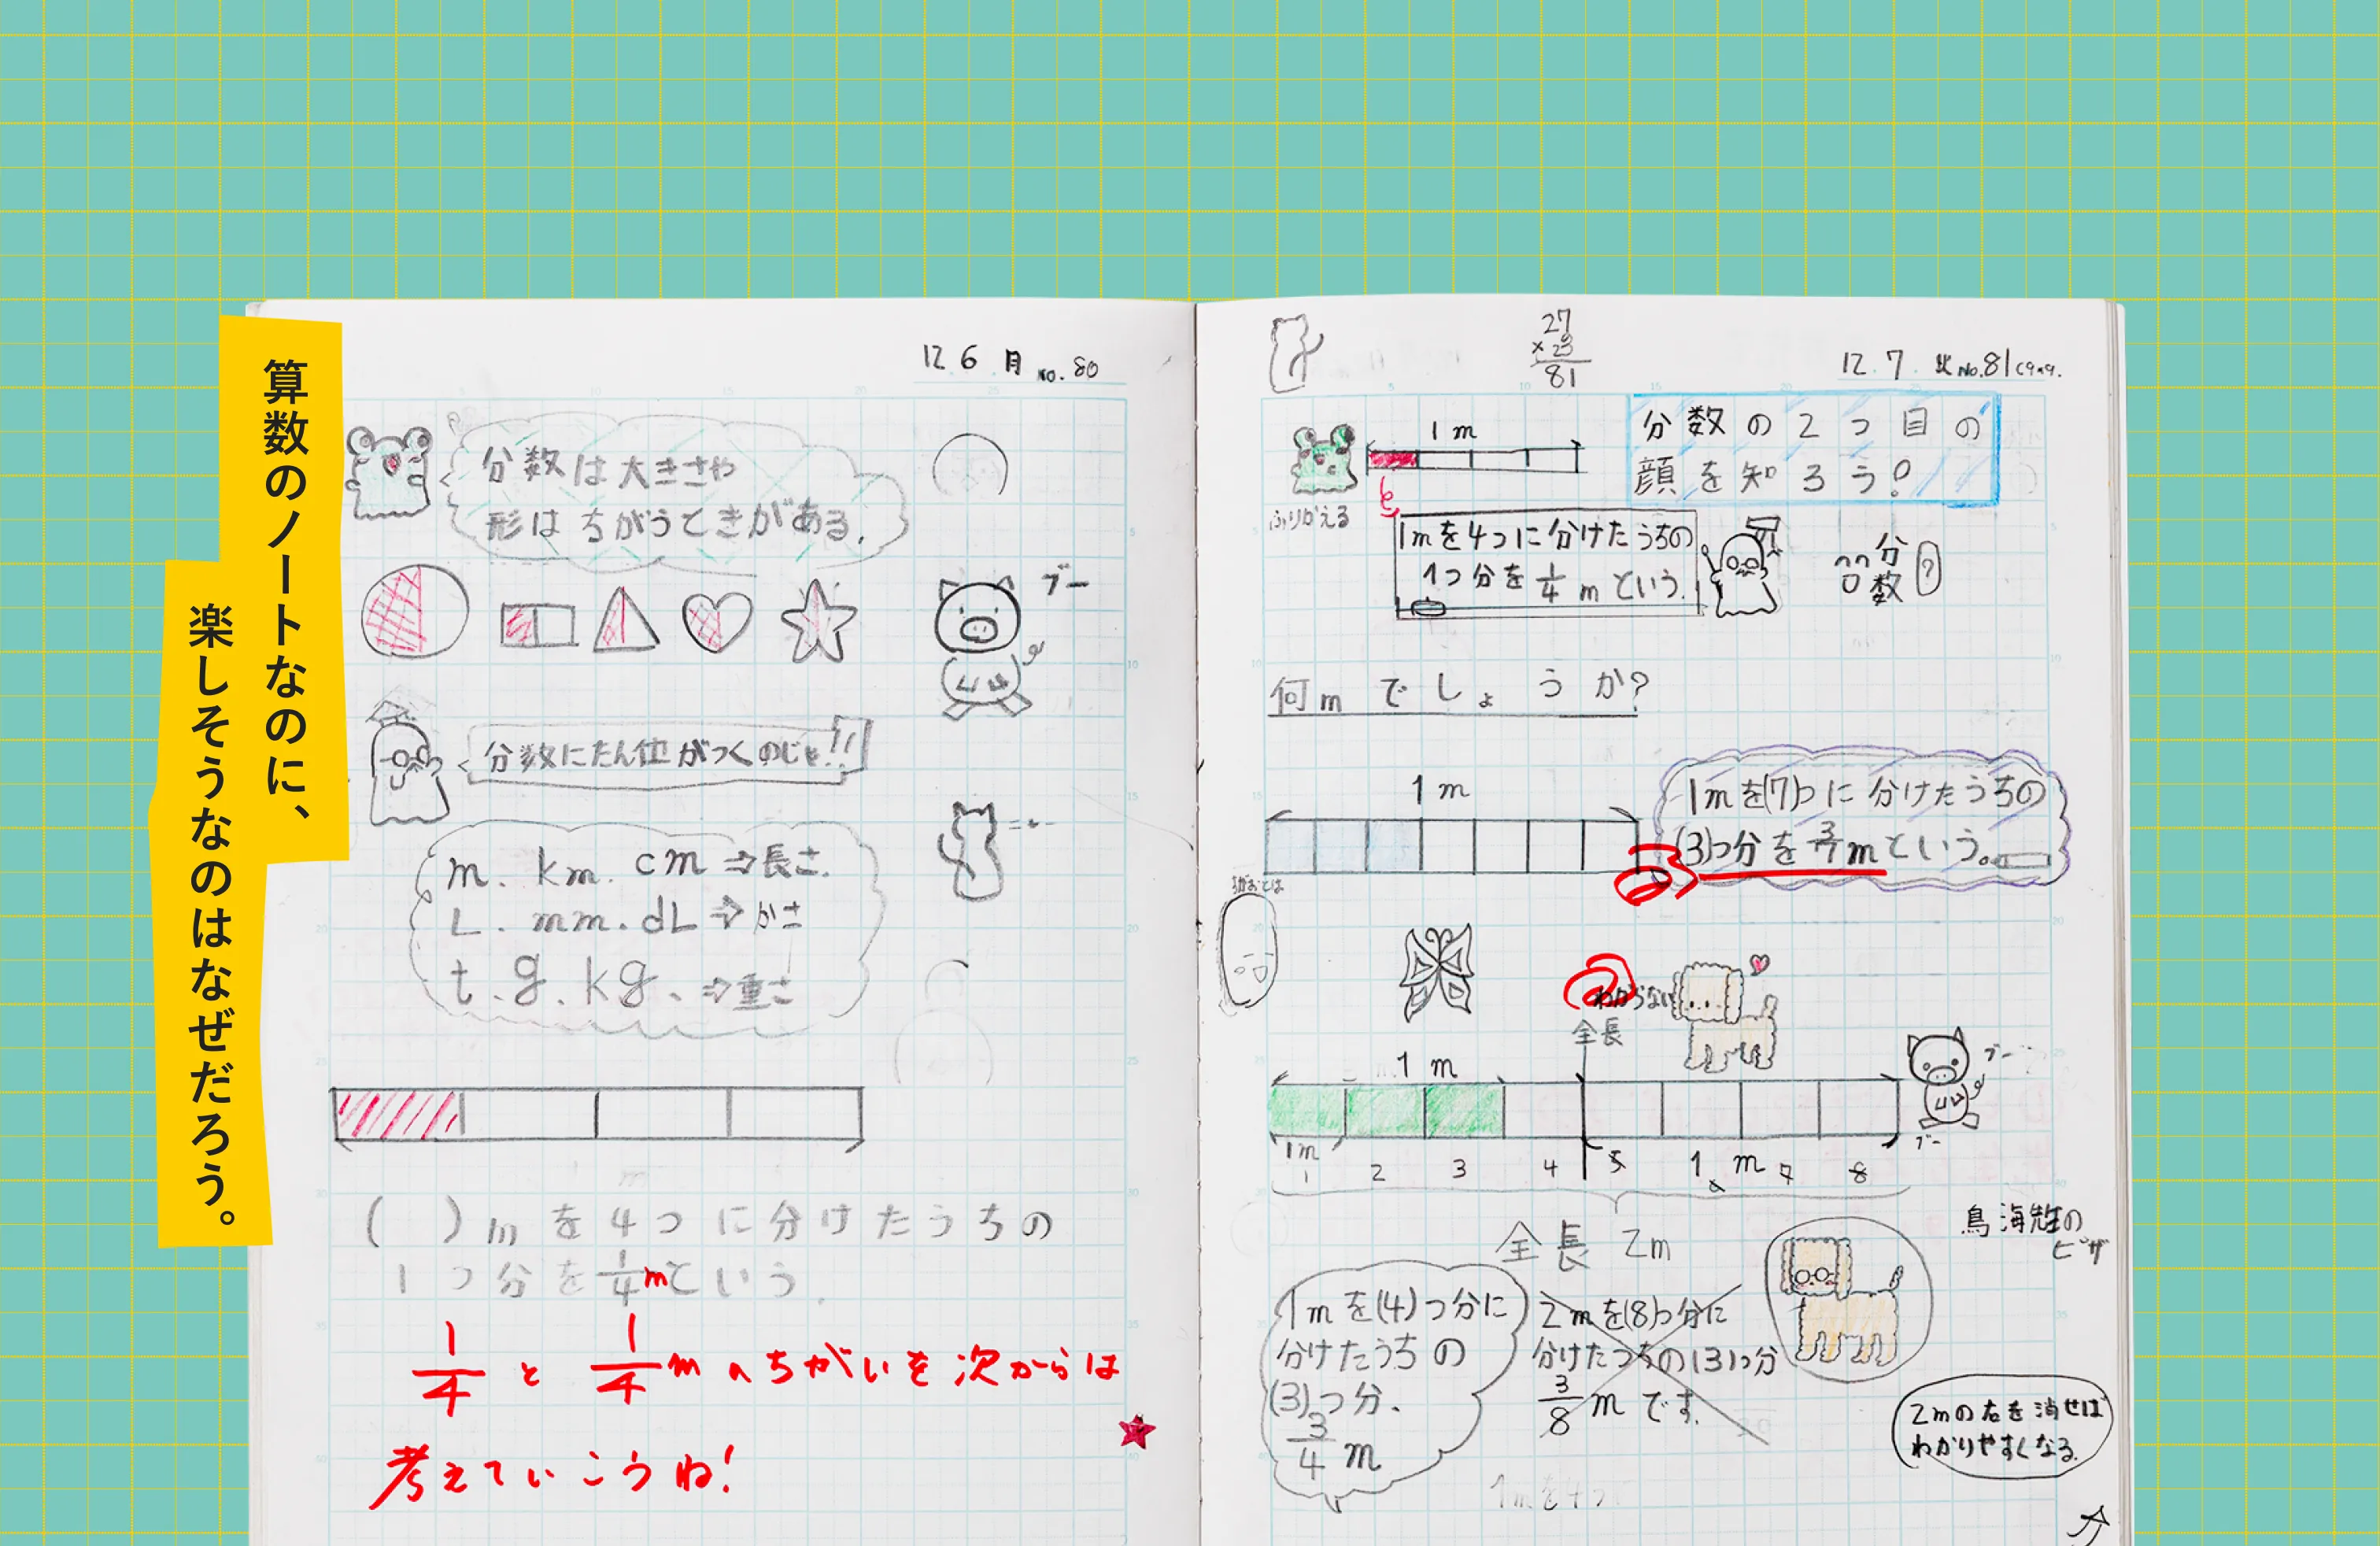 算数のノートなのに、
楽しそうなのはなぜだろう。
12 6 月 No. 80
分数は大きさや
形はちがうときがある.
ブー
分数にたん位がつくのじゃ!!
m. km. cm ⇒長さ.
L. mm. dL ⇒かさ
t. g. kg. ⇒重さ
( )mを4つに分けたうちの
1つ分を1/4mという.
1/4と1/4mのちがいを次からは
考えていこうね!
27
×23
81
12.7. 火 No.81
1m
分数の2つ目の
顔を知ろう!
ふりかえる
1mを4つに分けたうちの
1つ分を1/4mという.
分数?
何mでしょうか?
1m
1mを(7)つに分けたうちの
(3)つ分を3/7mという。
わからない
全長
1m
ブー
ブー
1m
1 2 3 4 5 6 7 8
1m
全長 2m
鳥海先生の
ピザ
1mを(4)つ分に
分けたうちの
(3)つ分.
3/4m
2mを(8)つ分に
分けたうちの(3)つ分
3/8mです.
2mの右を消せば
わかりやすくなる.